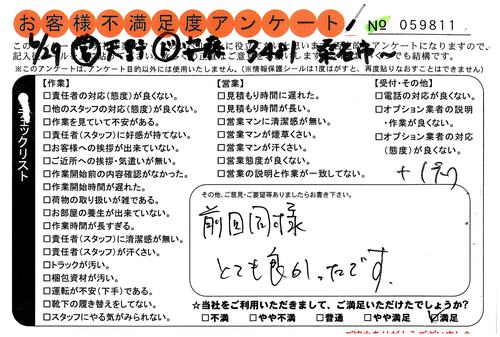 お客様不満足度アンケート
№ 059811
6/29
桑名市〜
※このアンケートは、アンケート目的以外には使用いたしません。(※情報保護シールは1度はがすと、再度貼りなおすことはできません)
チェックリスト
【作業】
□責任者の対応(態度)が良くない。
□他のスタッフの対応(態度)が良くない。
□作業を見ていて不安がある。
□責任者(スタッフ)に好感が持てない。
□お客様への挨拶が出来ていない。
□ご近所への挨拶・気遣いが無い。
□作業開始前の内容確認がなかった。
□作業開始時間が遅れた。
□荷物の取り扱いが雑である。
□お部屋の養生が出来ていない。
□作業時間が長すぎる。
□責任者(スタッフ)に清潔感が無い。
□責任者(スタッフ)が汗くさい。
□トラックが汚い。
□梱包資材が汚い。
□運転が不安(下手)である。
□靴下の履き替えをしてない。
□スタッフにやる気がみられない。
【営業】
□見積もり時間に遅れた。
□見積もり時間が長い。
□営業マンに清潔感が無い。
□営業マンが煙草くさい。
□営業マンが汗くさい。
□営業態度が良くない。
□営業の説明と作業が一致してない。
【受付・その他】
□電話の対応が良くない。
□オプション業者の説明・作業が良くない。
□オプション業者の対応(態度)が良くない。
その他、ご意見・ご要望等ありましたらお書き下さい。
前回同様
とても良かったです。
☆当社をご利用いただきまして、ご満足いただけたでしょうか?
□不満 □やや不満 □普通 □やや満足 ☑満足